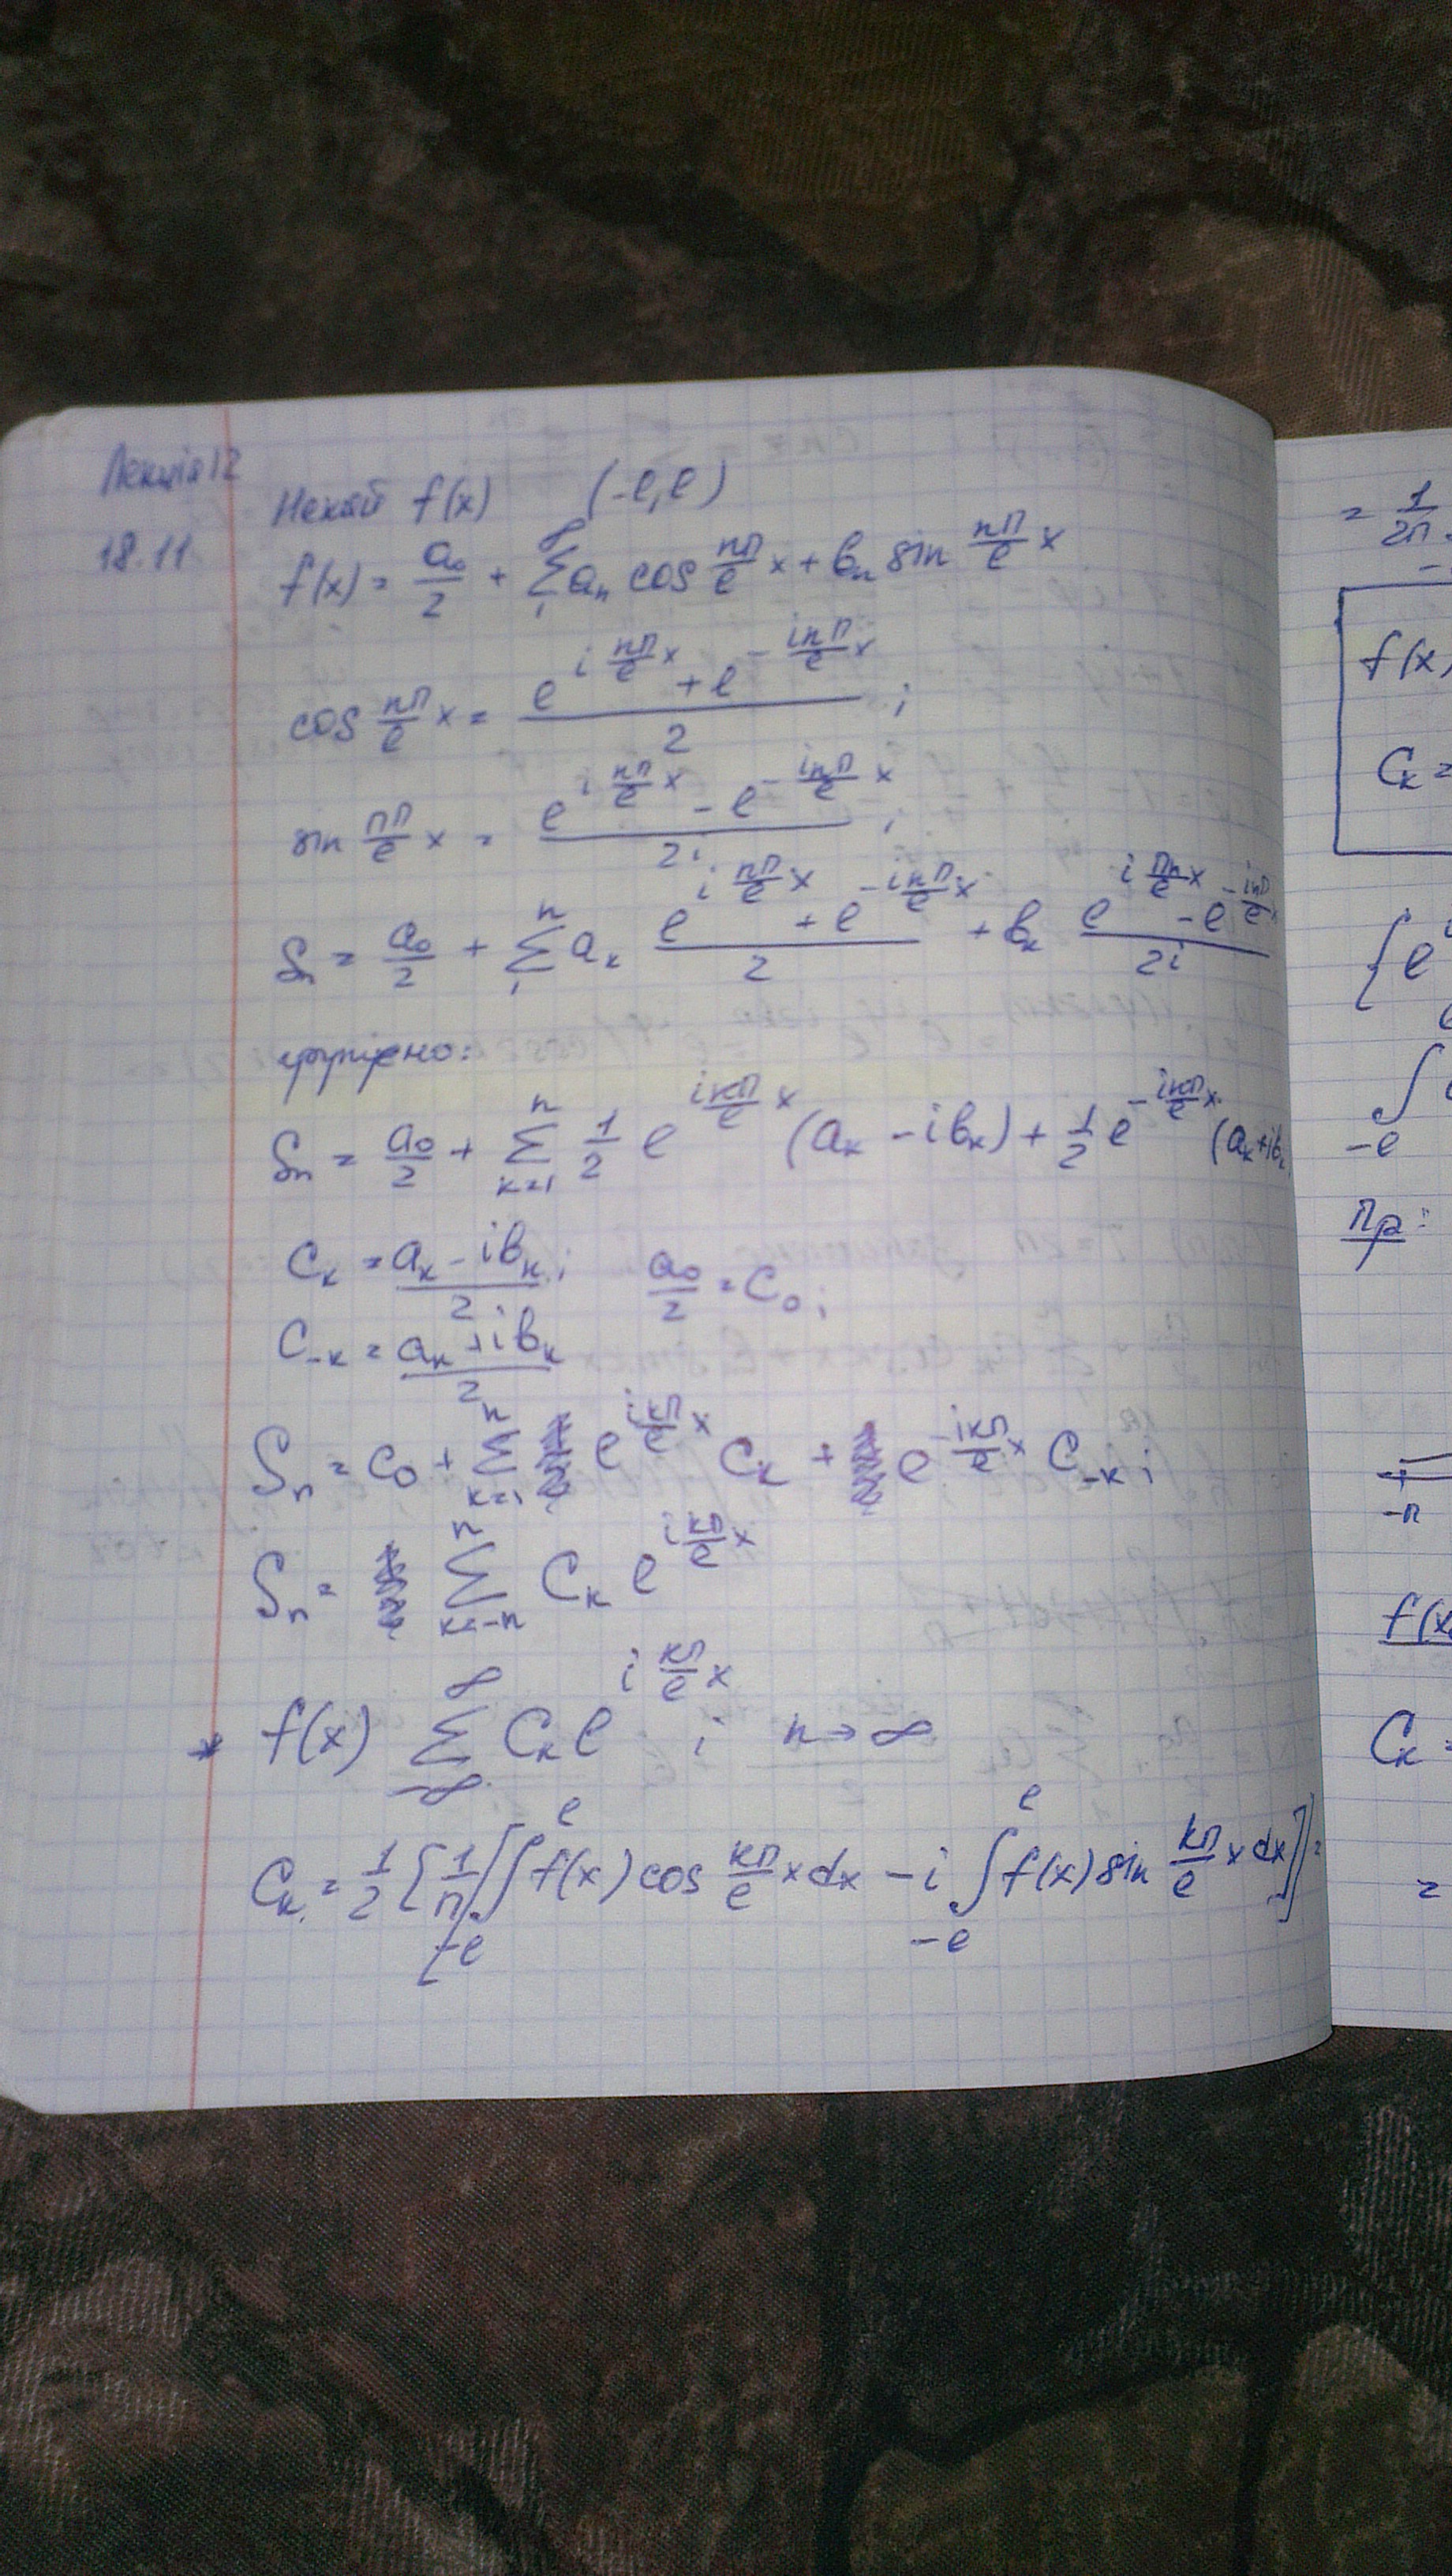 Лекція 12
18.11
Нехай f(x) (-l, l)
f(x) = a₀/2 + ∑₁^∞ aₙ cos nπ/l x + bₙ sin nπ/l x
cos nπ/l x = (e^(i nπ/l x) + e^(- inπ/l x))/2 ;
sin nπ/l x = (e^(i nπ/l x) - e^(- inπ/l x))/2i ;
Sₙ = a₀/2 + ∑₁^n aₖ (e^(i nπ/l x) + e^(- inπ/l x))/2 + bₖ (e^(i πn/l x) - e^(- inπ/l x))/2i
групуємо:
Sₙ = a₀/2 + ∑_(k=1)^n 1/2 e^(ikπ/l x) (aₖ - ibₖ) + 1/2 e^(- ikπ/l x) (aₖ + ibₖ
Cₖ = (aₖ - ibₖ)/2 ; a₀/2 = C₀ ;
C₋ₖ = (aₖ + ibₖ)/2
Sₙ = C₀ + ∑_(k=1)^n e^(ikπ/l x) Cₖ + e^(- ikπ/l x) C₋ₖ ;
Sₙ = ∑_(k=-n)^n Cₖ e^(i kπ/l x)
* f(x) ∑_(-∞)^∞ Cₖ e^(i kπ/l x) ; n → ∞
Cₖ = 1/2 [1/π [∫_(-l)^l f(x) cos kπ/l x dx - i ∫_(-l)^l f(x) sin kπ/l x dx]] =
= 1/2π
f(x)
Cₖ =
{ e
∫
-l
Пр:
-π
f(x
Cₖ =
=